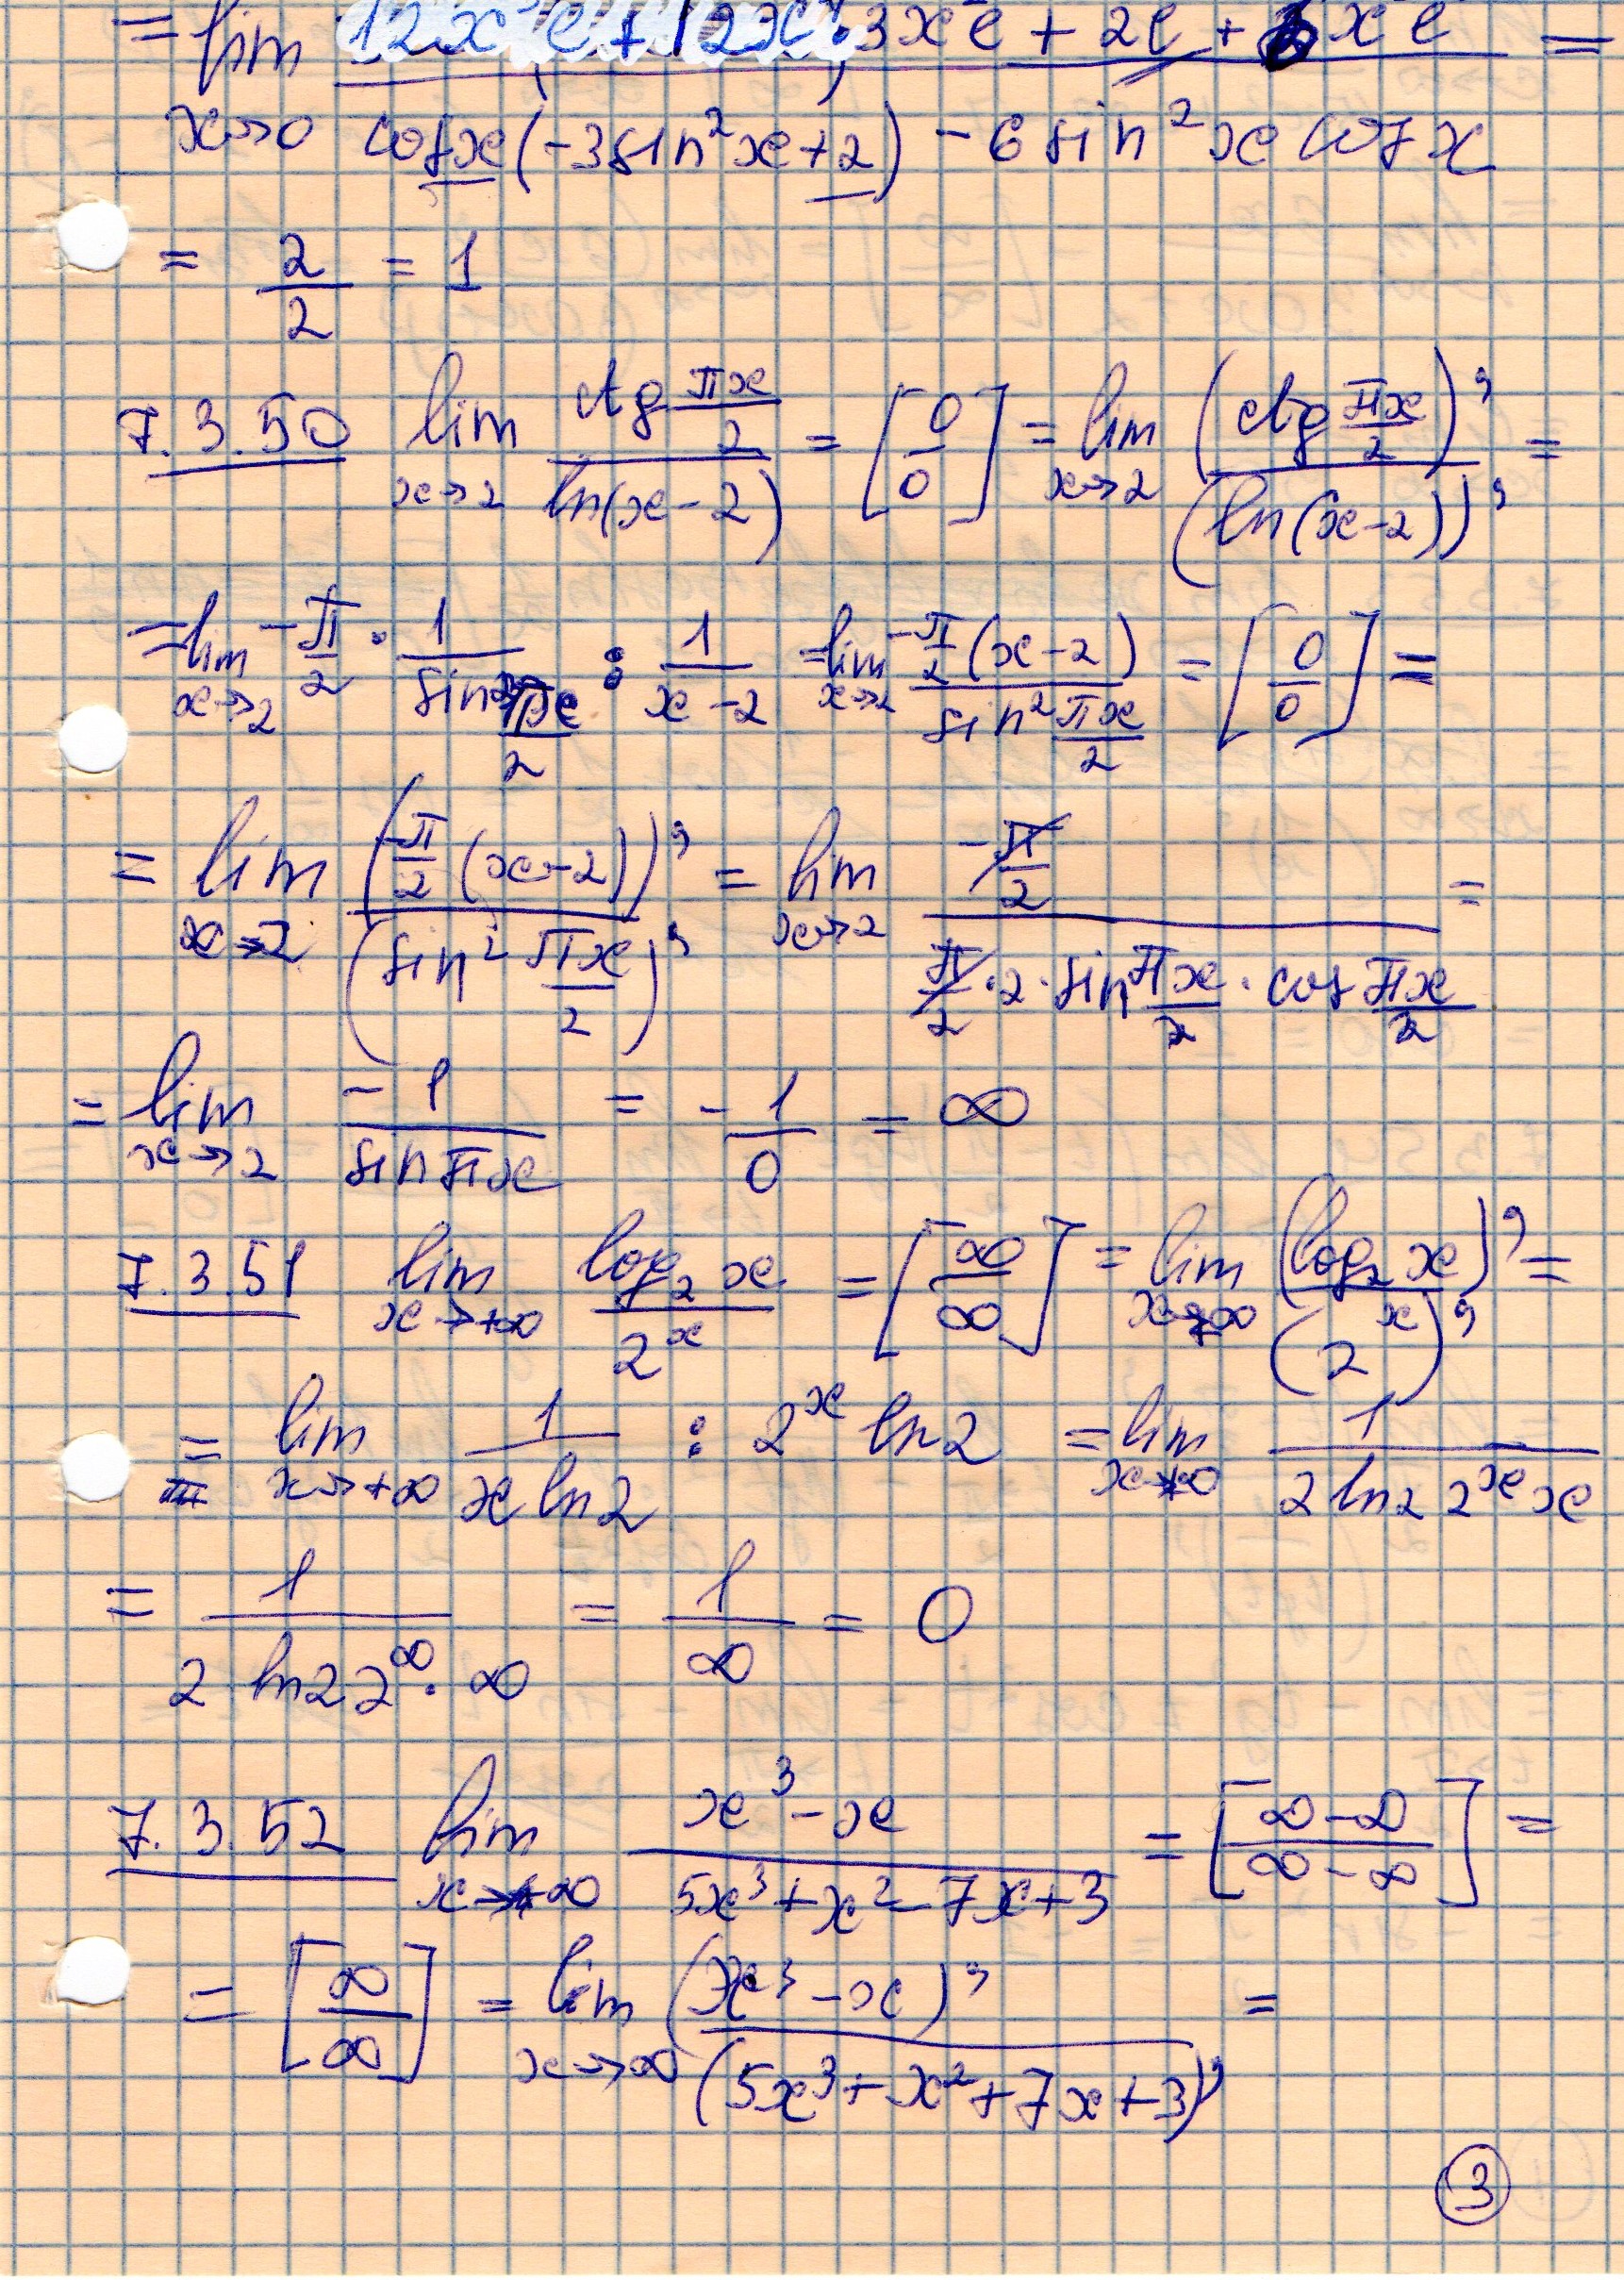 = lim (12x²e + 12x · 3x²e + 2e + 6xe) =
x→0 cosx(-3sin²x+2) - 6sin²x cosx
= 2/2 = 1
7.3.50 lim x→2 ctg πx/2 / ln(x-2) = [0/0] = lim x→2 (ctg πx/2)' / (ln(x-2))' =
= lim x→2 -π/2 · 1/sin² πx/2 : 1/x-2 = lim x→2 -π/2 (x-2) / sin² πx/2 = [0/0] =
= lim x→2 (-π/2 (x-2))' / (sin² πx/2)' = lim x→2 -π/2 / π/2 · 2 · sin πx/2 · cos πx/2 =
= lim x→2 -1 / sin πx = -1/0 = ∞
7.3.51 lim x→+∞ log₂x / 2ˣ = [∞/∞] = lim x→+∞ (log₂x)' / (2ˣ)' =
= lim x→+∞ 1 / x ln2 : 2ˣ ln2 = lim x→+∞ 1 / 2 ln2 2ˣ x
= 1 / 2 ln2 2^∞ · ∞ = 1/∞ = 0
7.3.52 lim x→+∞ x³-x / 5x³+x²-7x+3 = [∞-∞ / ∞-∞] =
= [∞/∞] = lim x→∞ (x³-x)' / (5x³+x²+7x+3)' =
3